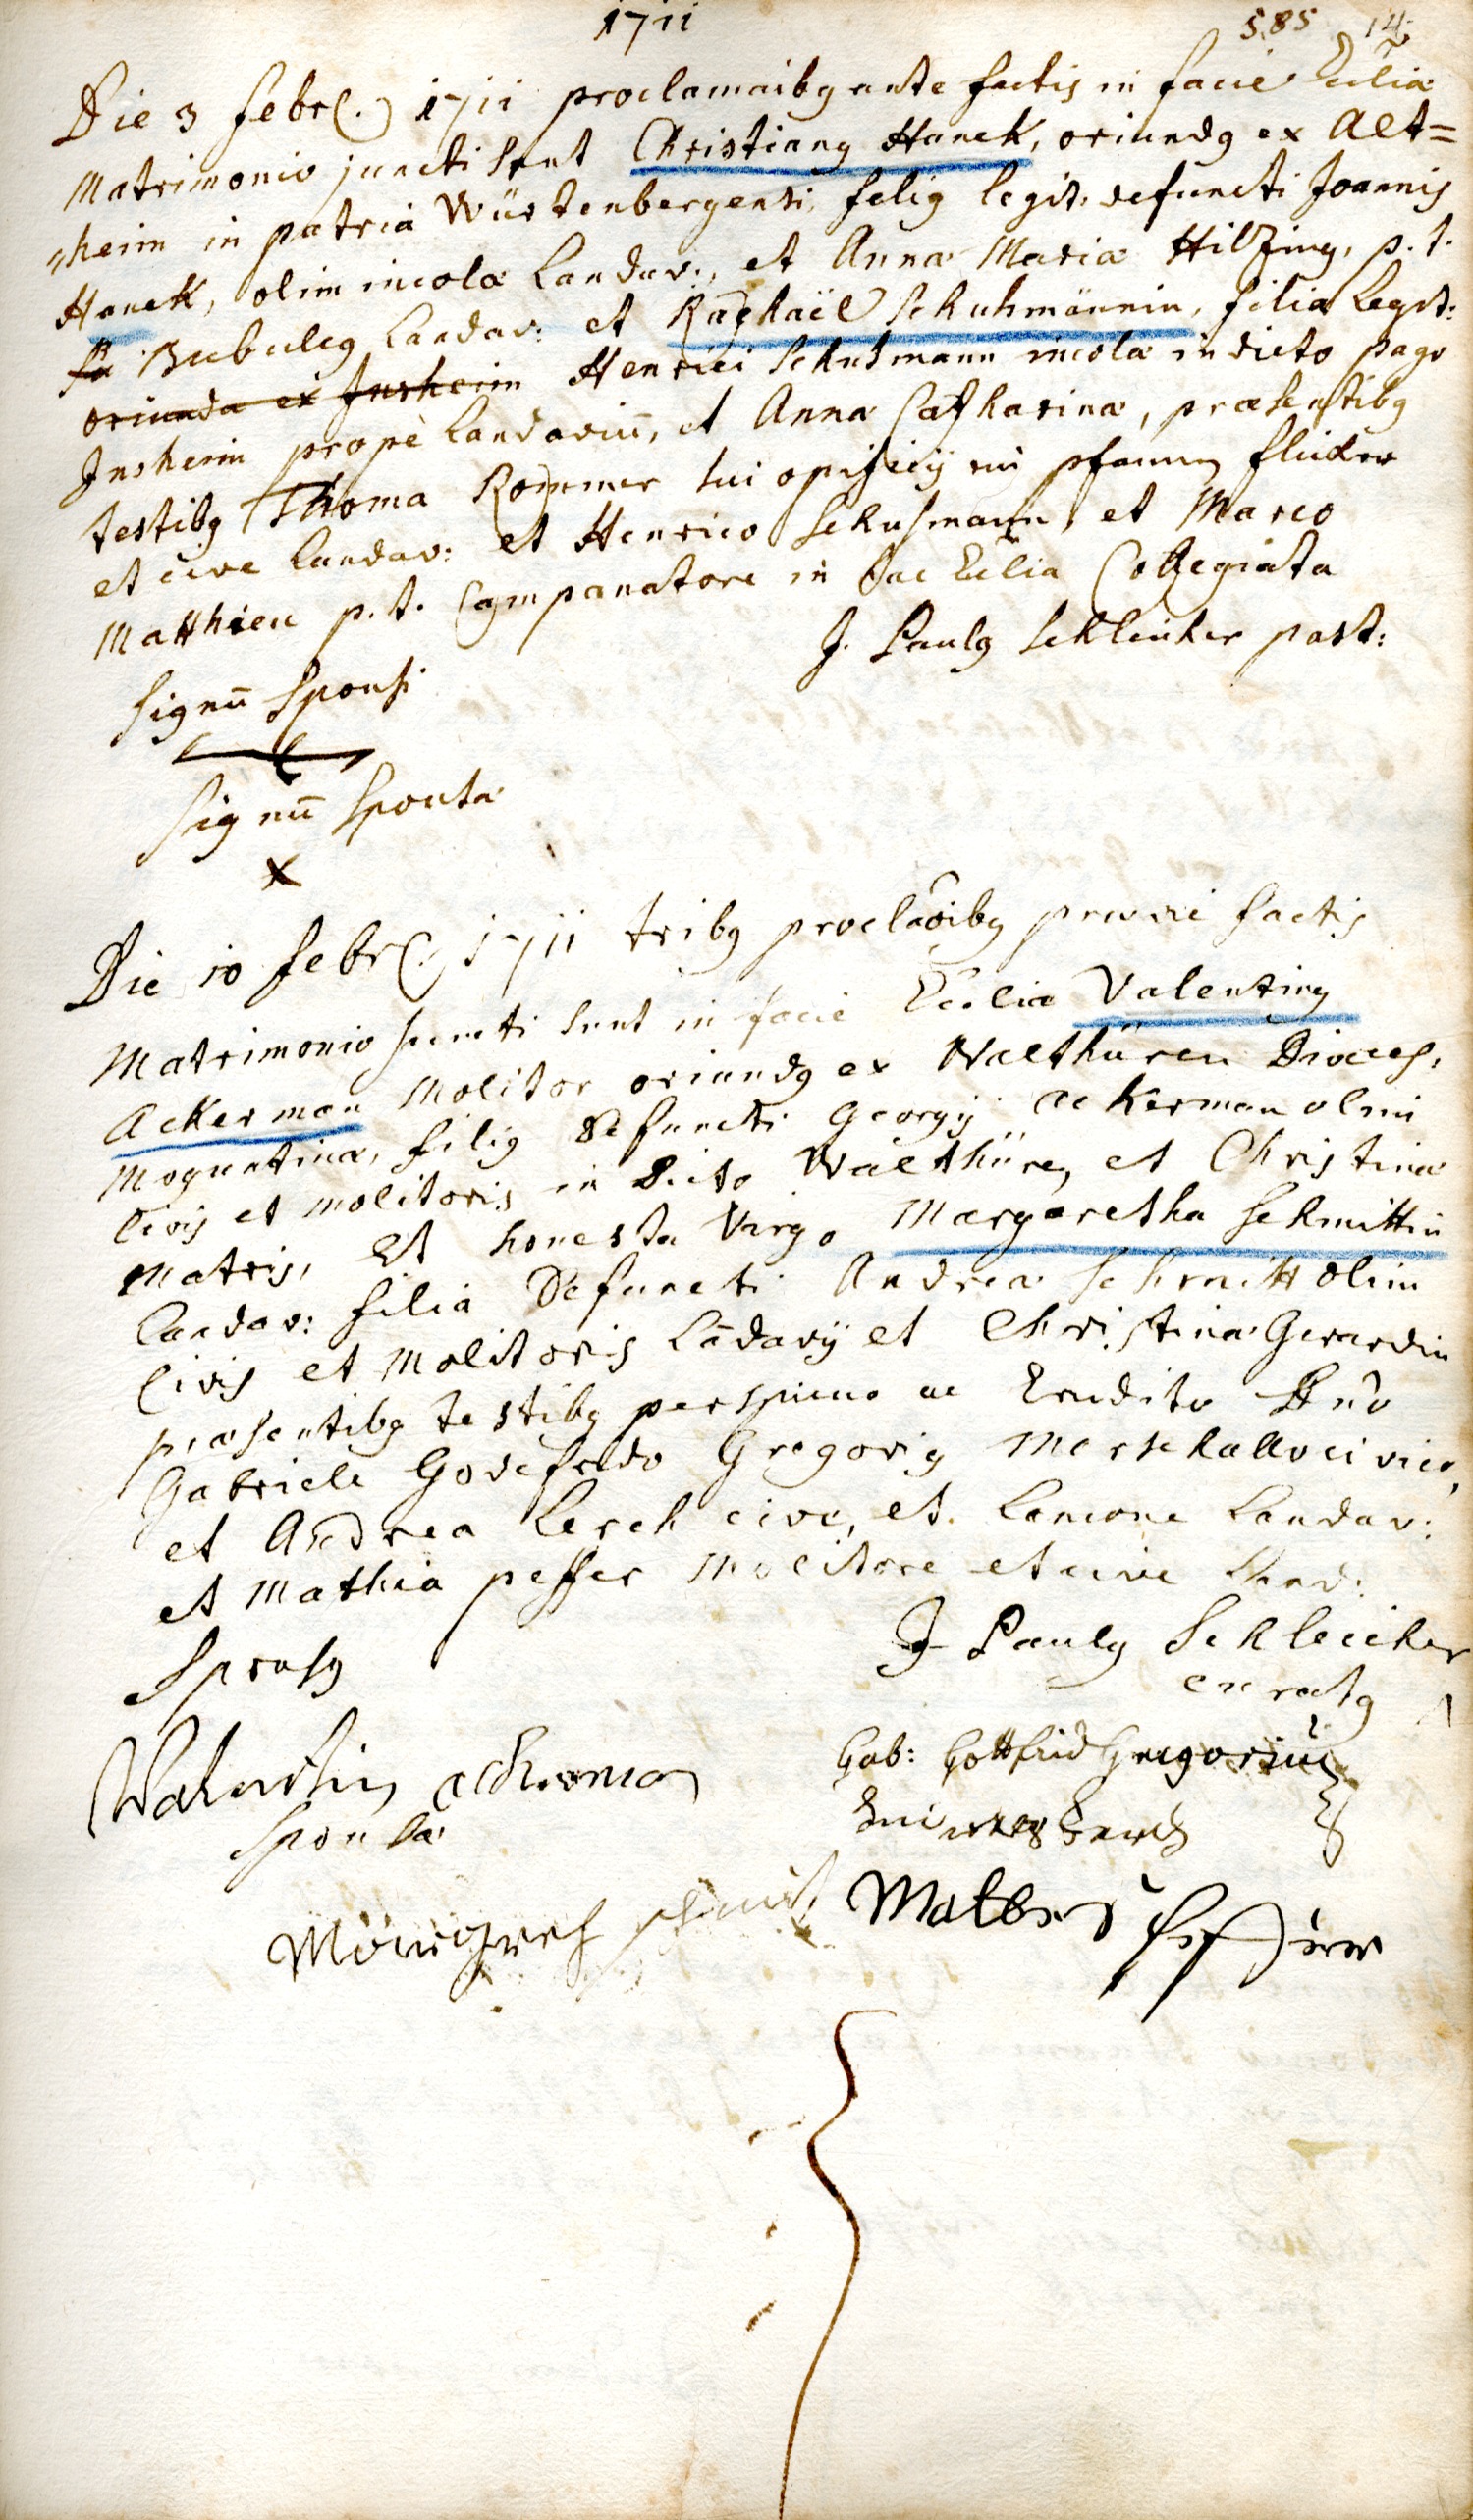 1711
585 14
Die 3 febr(.) 1711 proclamaibg ante factis in facie Ecclia
Matrimonio juncti sunt Christiang Hanek, oriundg ex Alt=
"heim in patria Würtenbergensi, filig legit. defuncti Joannis
Hanek, olim incolæ Landav:, et Anna Maria Hilzing, p. t.
Bubulcg Landav: et Raphaël Schuhmännin, filia Legit:
oriunda ex Insheim Henrici Schuhmann incolæ in dicto pago
Insheim propè Landaviū, et Anna Catharina, præsentibg
testibg Thoma Rommer sui opificij ein pfannen flicker
et cive Landav: et Henrico Schuhmann, et Marco
Matthieu p. t. Campanatore in hac Ecclia Collegiata
J. Paulg Schleicher past:
signū sponsi
signū sponsa
x
Die 10 febr(.) 1711 tribg proclaōibg prævie factis
Matrimonio juncti sunt in facie Ecclia Valenting
Ackerman Molitor oriundg ex Walthüren Dioeces.
Moguntina, filig defuncti Georgij Ackerman olim
Civis et molitoris in dicto Walthüren, et Christina
Matris, et honesta virgo Margaretha Schmittin
Landav: filia defuncti Andrea Schmitt olim
Civis et Molitoris Lādavij et Christina Gerardin
præsentibg testibg perspicuo ac Erudito Dn̄o
Gabriele Godefrido Gregorig Marschallo civico,
et Andrea Lerch cive, et Lanione Landav:
et Mathia peffer Molitore et cive Land:
J Paulg Schleicher
curatg
Sponsg
Valentin Ackerman
Gab: Gottfrid Gregorius
Sponsa